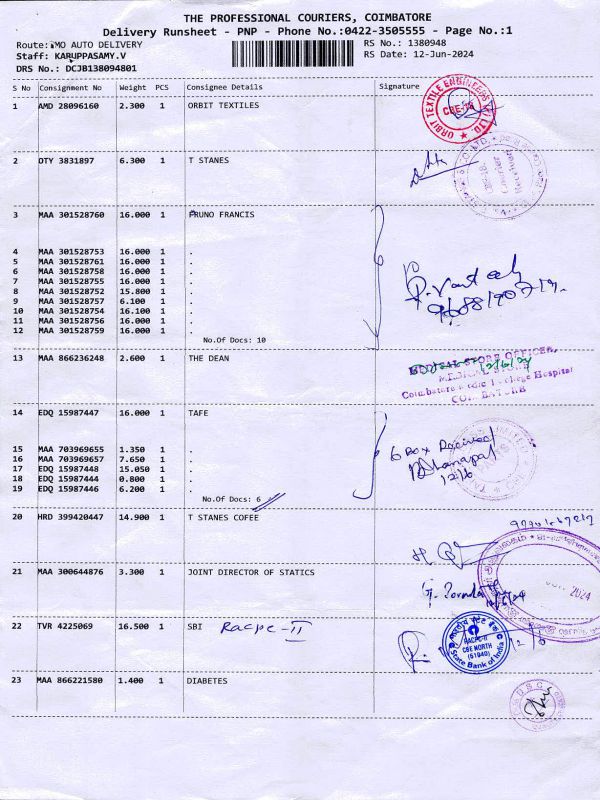 THE PROFESSIONAL COURIERS, COIMBATORE
Delivery Runsheet - PNP - Phone No.:0422-3505555 - Page No.:1
Route: MO AUTO DELIVERY RS No.: 1380948
Staff: KARUPPASAMY.V RS Date: 12-Jun-2024
DRS No.: DCJB138094801
S No Consignment No Weight PCS Consignee Details Signature
1 AMD 28096160 2.300 1 ORBIT TEXTILES
ORBIT TEXTILE ENGINEERS (I) LTD. ★
2 OTY 3831897 6.300 1 T STANES
3 MAA 301528760 16.000 1 PRUNO FRANCIS
4 MAA 301528753 16.000 1 .
5 MAA 301528761 16.000 1 .
6 MAA 301528758 16.000 1 .
7 MAA 301528755 16.000 1 .
8 MAA 301528752 15.800 1 .
9 MAA 301528757 6.100 1 .
10 MAA 301528754 16.100 1 .
11 MAA 301528756 16.000 1 .
12 MAA 301528759 16.000 1 .
No.Of Docs: 10
13 MAA 866236248 2.600 1 THE DEAN
MEDICAL STORE OFFICER,
MEDICAL STORE
Coimbatore Medical College Hospital
COIMBATORE
12/6/24
14 EDQ 15987447 16.000 1 TAFE
15 MAA 703969655 1.350 1 .
16 MAA 703969657 7.650 1 .
17 EDQ 15987448 15.050 1 .
18 EDQ 15987449 0.800 1 .
19 EDQ 15987446 6.200 1 .
No.Of Docs: 6
6 Box Received
Dhanapal
12/6
20 HRD 399420447 14.900 1 T STANES COFEE
21 MAA 300644876 3.300 1 JOINT DIRECTOR OF STATICS
2024
22 TVR 4225069 16.500 1 SBI Racpc-II
RACPC-II
CBE NORTH
(51940)
State Bank of India
23 MAA 866221580 1.400 1 DIABETES